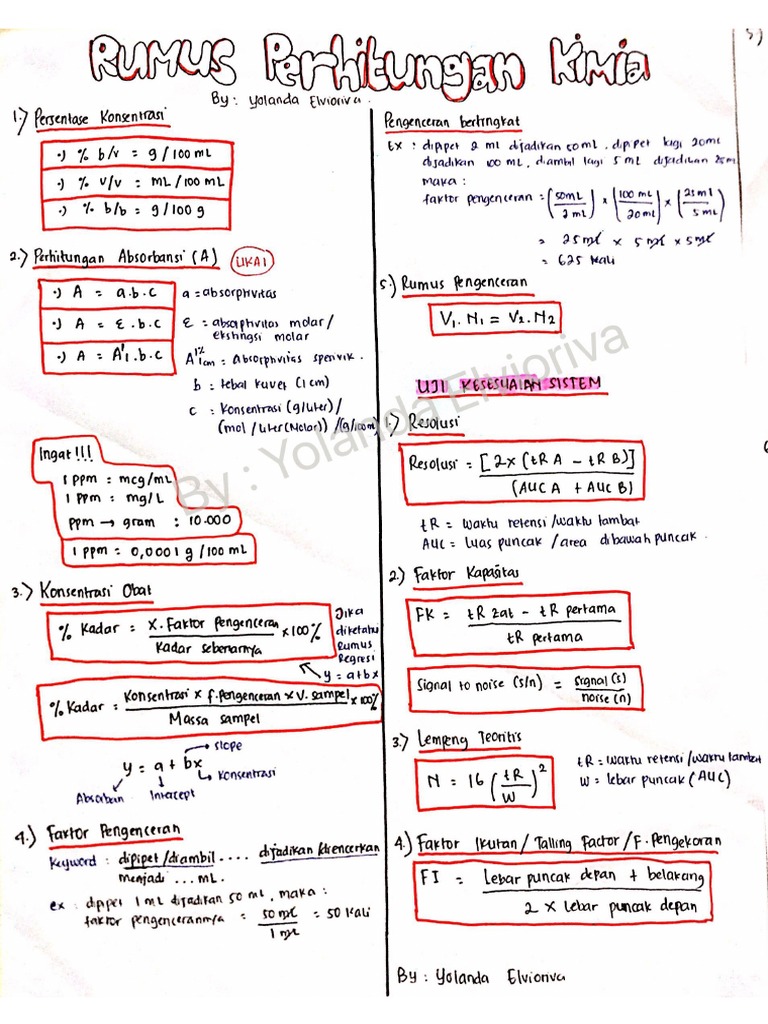 RUMUS Perhitungan Kimia
By : Yolanda Elvioriva.
1.) Persentase Konsentrasi
•) % b/v = g/100 mL
•) % v/v = mL/100 mL
•) % b/b = g/100 g
2.) Perhitungan Absorbansi (A) UKAI
•) A = a.b.c
a = absorptivitas
•) A = ε.b.c
ε = absorptivitas molar/
ekstingsi molar
•) A = A¹₁.b.c
A 1% 1cm = Absorptivitas spesifik.
b = tebal kuvet (1 cm)
c = Konsentrasi (g/liter)/
(mol/liter (Molar)) /(g/100ml)
Ingat!!!
1 ppm = mcg/mL
1 ppm = mg/L
ppm → gram : 10.000
1 ppm = 0,0001 g/100 mL
3.) Konsentrasi Obat
% Kadar = X. Faktor Pengenceran / Kadar sebenarnya × 100%
Jika
diketahui
Rumus
Regresi
y = a+bx
% Kadar = Konsentrasi × f.pengenceran × v. sampel / Massa sampel × 100%
y = a + bx
slope
Konsentrasi
Absorban
Intercept
4.) Faktor Pengenceran
Keyword : dipipet/diambil .... dijadikan/diencerkan
menjadi ... mL.
ex : dipipet 1 mL dijadikan 50 mL, maka :
faktor pengencerannya = 50 ml / 1 ml = 50 Kali
Pengenceran bertingkat
Ex : dipipet 2 ml dijadikan 50 ml. dipipet lagi 20ml
dijadikan 100 ml, diambil lagi 5 ml dijadikan 25m
maka :
faktor pengenceran = (50ml / 2 ml) × (100 ml / 20 ml) × (25 ml / 5 mL)
= 25 ml × 5 ml × 5 ml
= 625 kali
5.) Rumus Pengenceran
V₁. N₁ = V₂. N₂
UJI KESESUAIAN SISTEM
1.) Resolusi
Resolusi = [2× (tR A − tR B)] / (AUC A + AUC B)
tR = waktu retensi/waktu tambat
AUC = Luas puncak / area dibawah puncak.
2.) Faktor Kapasitas
FK = tR zat − tR pertama / tR pertama
Signal to noise (s/n) = signal (s) / noise (n)
3.) Lempeng Teoritis
N = 16 (tR / W)²
tR = waktu retensi/waktu tambat
W = lebar puncak (AUC)
4.) Faktor Ikutan / Tailing Factor / F. Pengekoran
FI = Lebar puncak depan + belakang / 2 × lebar puncak depan
By : Yolanda Elvioriva
By : Yolanda Elvioriva